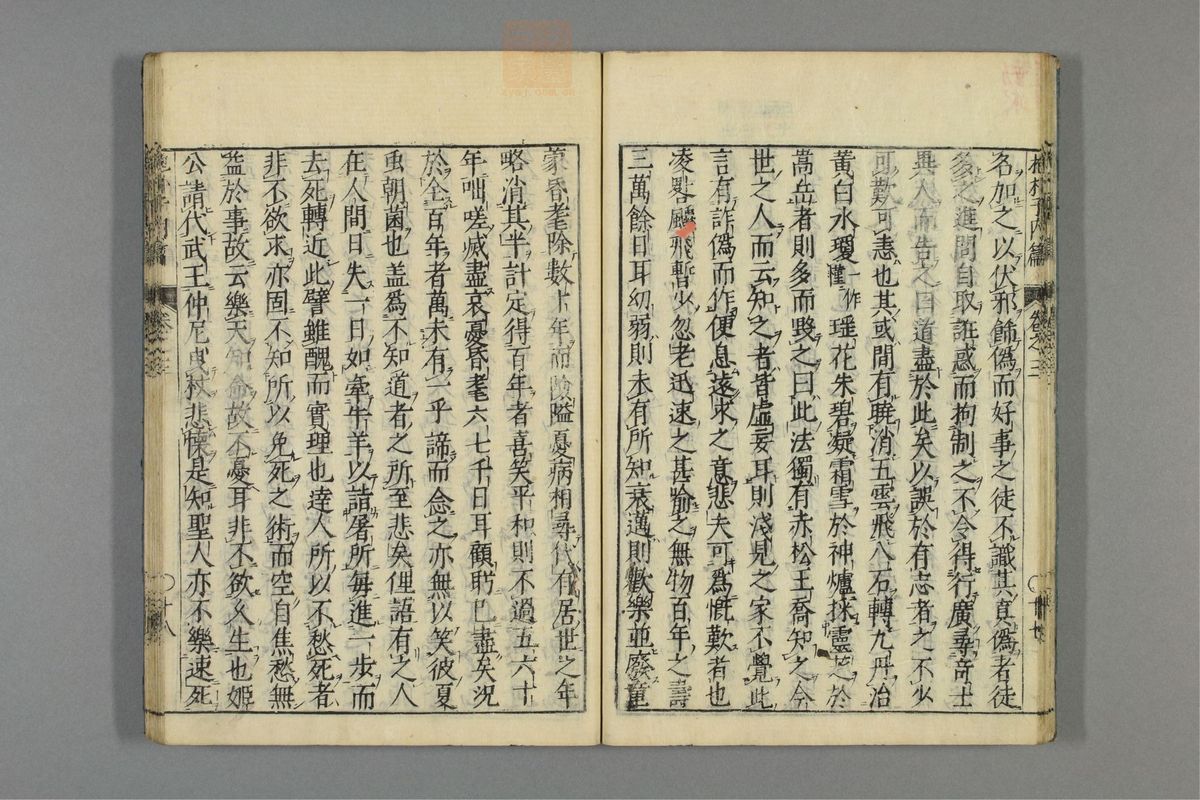 抱朴子內篇　卷之三
名加之以伏邪飾偽而好事之徒不識其真偽者徒
多之進問自取誑惑而拘制之不令得行廣尋奇士
異人而告之曰道盡於此矣以誤於有志者之不少
可歎可恚也其或聞有曉消五雲飛八石轉九丹治
黃白水瓊瑤花朱碧凝霜雪於神爐採靈芝於
嵩岳者則多而毀之曰此法獨有赤松王喬知之今
世之人而云知之者皆虛妄耳則淺見之家不覺此
言有詐偽而作便息遠求之意悲夫可為慨歎者也
凌晷飈飛暫少忽老迅速之甚喻之無物百年之壽
三萬餘日耳幼弱則未有所知衰邁則歡樂並廢童
蒙昏耄除數十年而險隘憂病相尋代有居世之年
略消其半計定得百年者喜笑平和則不過五六十
年咄嗟滅盡哀憂昏耄六七千日耳顧眄已盡矣況
於全百年者萬未有一乎諦而念之亦無以笑彼夏
虫朝菌也盖為不知道者之所至悲矣俚語有之人
在人間日失一日如牽牛羊以詣屠所每進一步而
去死轉近此譬雖醜而實理也達人所以不愁死者
非不欲求亦固不知所以免死之術而空自焦愁無
益於事故云樂天知命故不憂耳非不欲久生也姬
公請代武王仲尼曳杖悲懷是知聖人亦不樂速死
十八